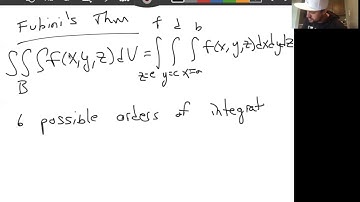 Fubini's Thm
∭_B f(x,y,z) dV = ∫_{z=e}^{f} ∫_{y=c}^{d} ∫_{x=a}^{b} f(x,y,z) dx dy dz
6 possible orders of integrat